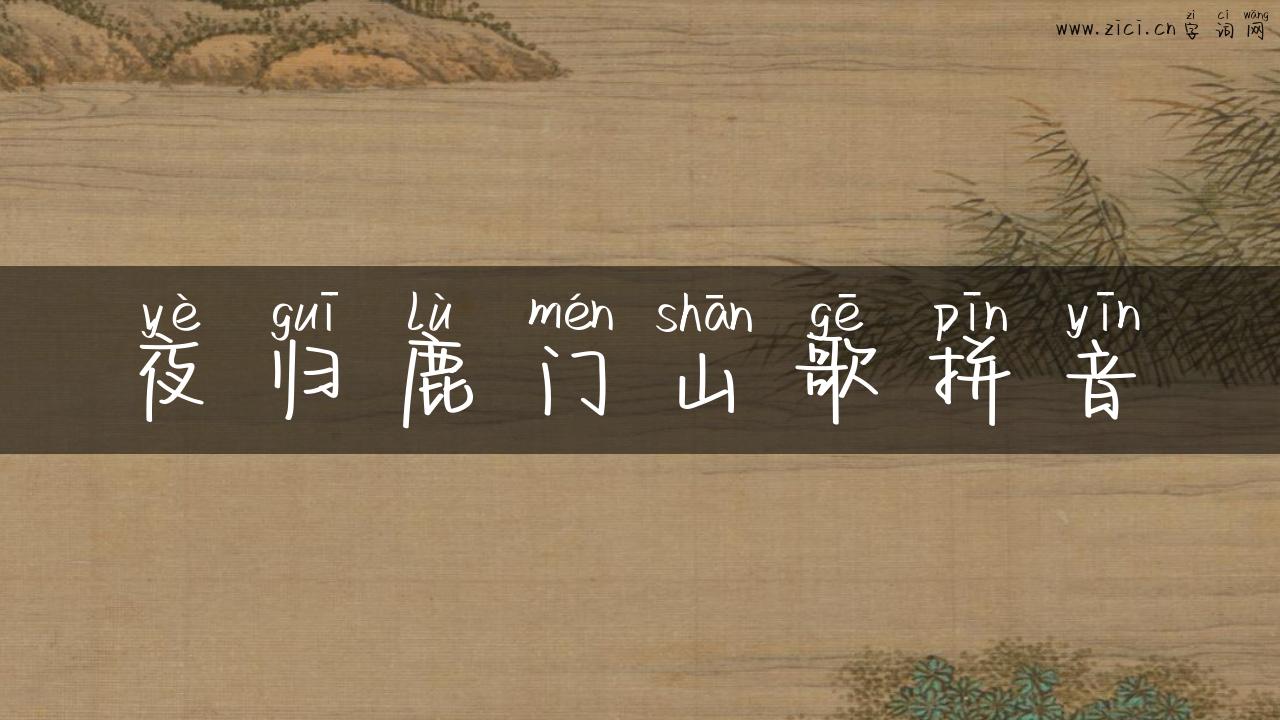 zì cí wǎng
www.zici.cn 字词网
yè guī lù mén shān gē pīn yīn
夜归鹿门山歌拼音